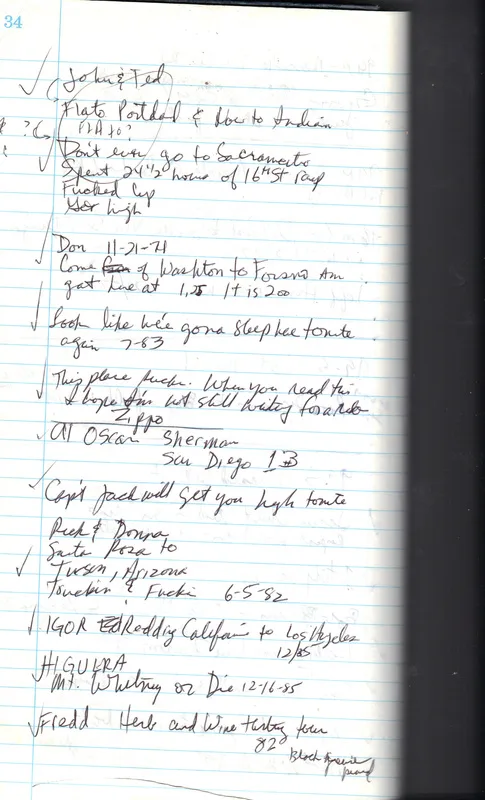 34
John & Ted
Plato Portdal & How to Indian
Don't ever go to Sacramento
Spent 24½ hours of 16th St ramp
Fucked up
high
Don 11-21-71
Come of Washton to Forsno Am
got here at 1,25 It is 200
Look like we'e gona sleep hee tonite
again 7-83
This place sucks. When you read this
I hope I'm not still waiting for a ride
Zippo
Al Oscar Sherman
San Diego 13
Cap't Jack will get you high tonite
Rick & Donna
Santa Roza to
Tucson, Arizona
Truckin & Fuckin 6-5-82
IGOR Redding Califain to Los Angeles
12/85
HIGUERA
Mt. Whitney or Die 12-16-85
Fredd Herb and Wine tasting tour
82
Black